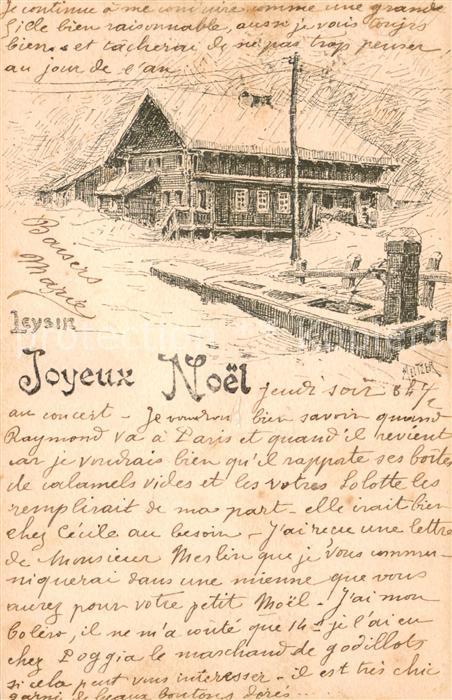 Je continue à me conduire comme une grande
fille bien raisonnable, aussi je vais toujrs
bien et tâcherai de ne pas trop penser
au jour de l'an
Baisers
Marie
Leysin
Joyeux Noël
Jeudi soir 8h ½
au concert - Je voudrais bien savoir quand
Raymond va à Paris et quand il revient
car je voudrais bien qu'il rapporte ses boîtes
de calamels vides et les votres Lolotte les
remplirait de ma part - elle irait bien
chez Cécile au besoin - J'ai reçue une lettre
de Monsieur Merlin que je vous commu-
niquerai dans une mienne que vous
aurez pour votre petit Noël - J'ai mon
boléro, il ne m'a couté que 14 je l'ai eu
chez Poggia le marchand de godillots
si cela peut vous interesser - il est très chic
garni de beaux boutons dorés...